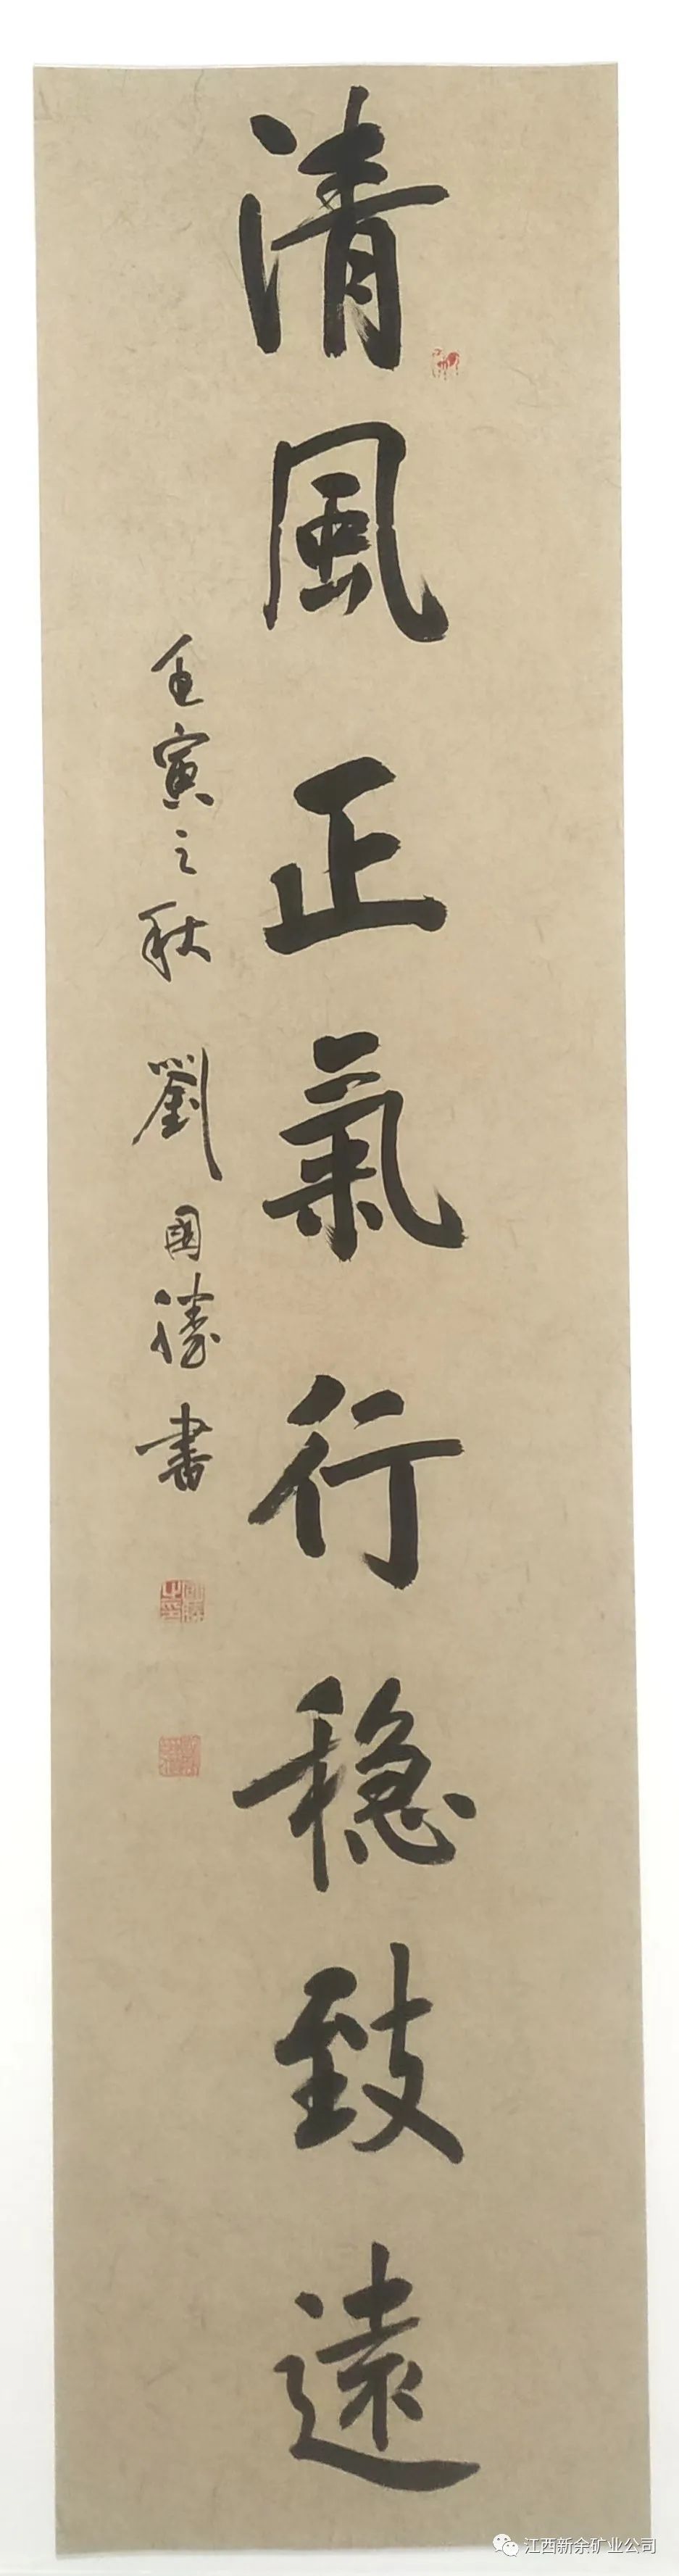 清風正氣行稳致遠
壬寅之秋 劉國勝書
江西新余矿业公司